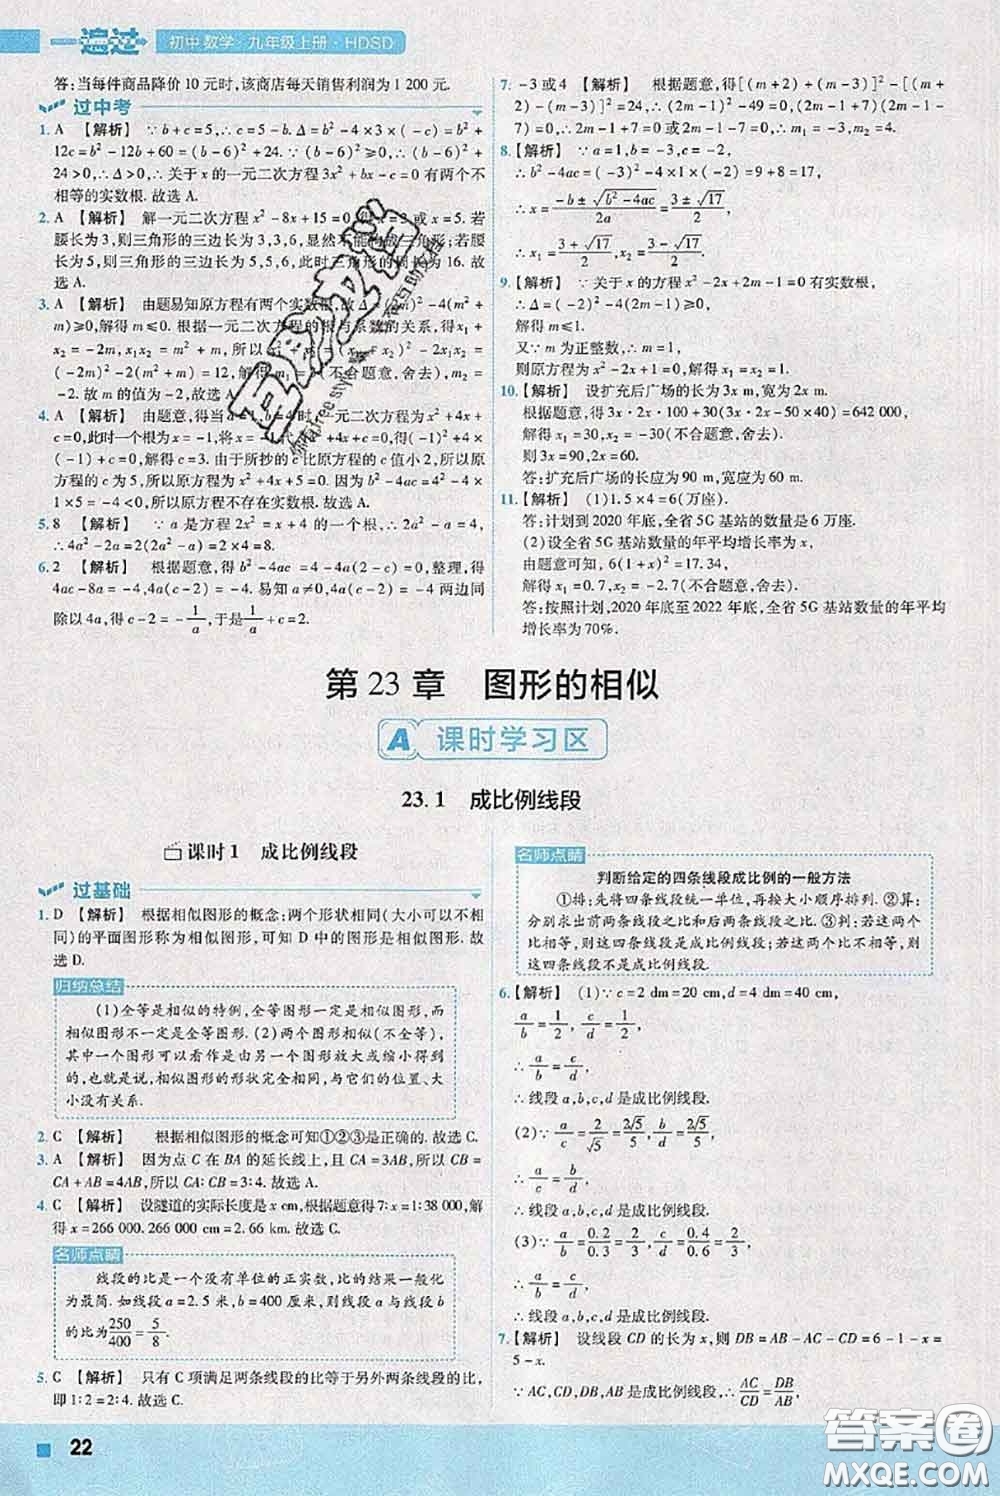 一遍过 初中数学·九年级上册·HDSD
答:当每件商品降价 10 元时,该商店每天销售利润为 1 200 元.
过中考
1. A 【解析】 ∵b+c=5,∴c=5-b.Δ=b²-4×3×(-c)=b²+
12c=b²-12b+60=(b-6)²+24.∵(b-6)²≥0,∴(b-6)²+
24>0,∴Δ>0,∴关于 x 的一元二次方程 3x²+bx-c=0 有两个不
相等的实数根.故选 A.
2. A 【解析】 解一元二次方程 x²-8x+15=0,得 x=3 或 x=5.若
腰长为 3,则三角形的三边长为 3,3,6,显然不能构成三角形;若
腰长为 5,则三角形三边长为 5,5,6,此时三角形的周长为 16.故
选 A.
3. A 【解析】 由题易知原方程有两个实数根,故 Δ=4m²-4(m²+
m)≥0,解得 m≤0.根据一元二次方程的根与系数的关系,得 x₁+
x₂=-2m,x₁x₂=m²+m,所以 x₁²+x₂²=(x₁+x₂)²-2x₁x₂=
(-2m)²-2(m²+m)=12,解得 m₁=3(不合题意,舍去),m₂=
-2.故 m 的值为-2.故选 A.
4. A 【解析】 由题意,得当 a=1,b=4 时,一元二次方程为 x²+4x+
c=0,此时一个根为 x=-1,将 x=-1 代入,得(-1)²+4×(-1)+
c=0,解得 c=3.由于所抄的 c 比原方程的 c 值小 2,所以原方程的
c=5,所以原方程为 x²+4x+5=0.因为 b²-4ac=4²-4×
1×5=-4<0,所以原方程不存在实数根.故选 A.
5. 8 【解析】 ∵a 是方程 2x²=x+4 的一个根,∴2a²-a=4,
∴4a²-2a=2(2a²-a)=2×4=8.
6. 2 【解析】 根据题意,得 b²-4ac=4-4a(2-c)=0,整理,得
4ac-8a=-4,4a(c-2)=-4.易知 a≠0,等式两边同
除以 4a,得 c-2=-1/a,于是 1/a+c=2.
7. -3或4 【解析】 根据题意,得[(m+2)+(m-3)]²-[(m+2)-
(m-3)]²=24,∴(2m-1)²-49=0,(2m-1+7)(2m-1-7)=
0,∴2m-1+7=0 或 2m-1-7=0,∴m₁=-3,m₂=4.
8. 【解析】 ∵a=1,b=-3,c=-2,
∴b²-4ac=(-3)²-4×1×(-2)=9+8=17,
∴x=(-b±√(b²-4ac))/2a=(3±√17)/2,
∴x₁=(3+√17)/2,x₂=(3-√17)/2.
9. 【解析】 ∵关于 x 的方程 x²-2x+2m-1=0 有实数根,
∴Δ=(-2)²-4(2m-1)≥0,
解得 m≤1.
又∵m 为正整数,∴m=1,
则原方程为 x²-2x+1=0,解得 x₁=x₂=1.
10. 【解析】 设扩充后广场的长为 3x m,宽为 2x m.
根据题意,得 3x·2x·100+30(3x·2x-50×40)=642 000,
解得 x₁=30,x₂=-30(不合题意,舍去).
所以 3x=90,2x=60.
答:扩充后广场的长应为 90 m,宽应为 60 m.
11. 【解析】 (1)1.5×4=6(万座).
答:计划到 2020 年底,全省 5G 基站的数量是 6 万座.
(2)设全省 5G 基站数量的年平均增长率为 x,
由题意可知,6(1+x)²=17.34,
解得 x₁=0.7,x₂=-2.7(不合题意,舍去).
答:按照计划,2020 年底至 2022 年底,全省 5G 基站数量的年平均
增长率为 70%.
第 23 章 图形的相似
A 课时学习区
23.1 成比例线段
课时1 成比例线段
过基础
1. D 【解析】 根据相似图形的概念:两个形状相同(大小可以不相
同)的平面图形称为相似图形,可知 D 中的图形是相似图形.故
选 D.
归纳总结
(1)全等是相似的特例,全等图形一定是相似图形,而
相似图形不一定是全等图形.(2)两个图形相似(不全等),
其中一个图形可以看作是由另一个图形放大或缩小得到
的,也就是说,相似图形的形状完全相同,与它们的位置、大
小没有关系.
2. C 【解析】 根据相似图形的概念可知①②③是正确的.故选 C.
3. A 【解析】 因为点 C 在 BA 的延长线上,且 CA=3AB,所以 CB=
CA+AB=4AB,所以 CA:CB=3:4.故选 A.
4. C 【解析】 设隧道的实际长度是 x cm,根据题意得 7:x=1:38 000,解
得 x=266 000.266 000 cm=2.66 km.故选 C.
名师点睛
线段的比是一个没有单位的正实数,比的结果一般化
为最简.如线段 a=2.5 米,b=400 厘米,则线段 a 与线段 b
的比为 250/400=5/8.
5. C 【解析】 只有 C 项满足两条线段的比等于另外两条线段的比,
即 1:2=2:4.故选 C.
名师点睛
判断给定的四条线段成比例的一般方法
①排:先将四条线段统一单位,再按大小顺序排列.②算:
分别求出前两条线段之比和后两条线段之比.③判:若这两个
比相等,则这四条线段是成比例线段;若这两个比不相等,则
这四条线段不是成比例线段.
6. 【解析】 (1)∵c=2 dm=20 cm,d=4 dm=40 cm,
a/b=1/2,c/d=1/2,
∴a/b=c/d,
∴线段 a,b,c,d 是成比例线段.
(2)∵a/c=2/√5=2√5/5,b/d=2√5/5,
∴a/c=b/d,
∴线段 a,b,c,d 是成比例线段.
(3)∵a/b=0.2/0.3=2/3,c/d=0.4/0.6=2/3,
∴a/b=c/d,
∴线段 a,b,c,d 是成比例线段.
7. 【解析】 设线段 CD 的长为 x,则 DB=AB-AC-CD=6-1-x=
5-x.
∵AC,CD,DB,AB 是成比例线段,∴AC/CD=DB/AB,
22
答案圈
MXQE.COM